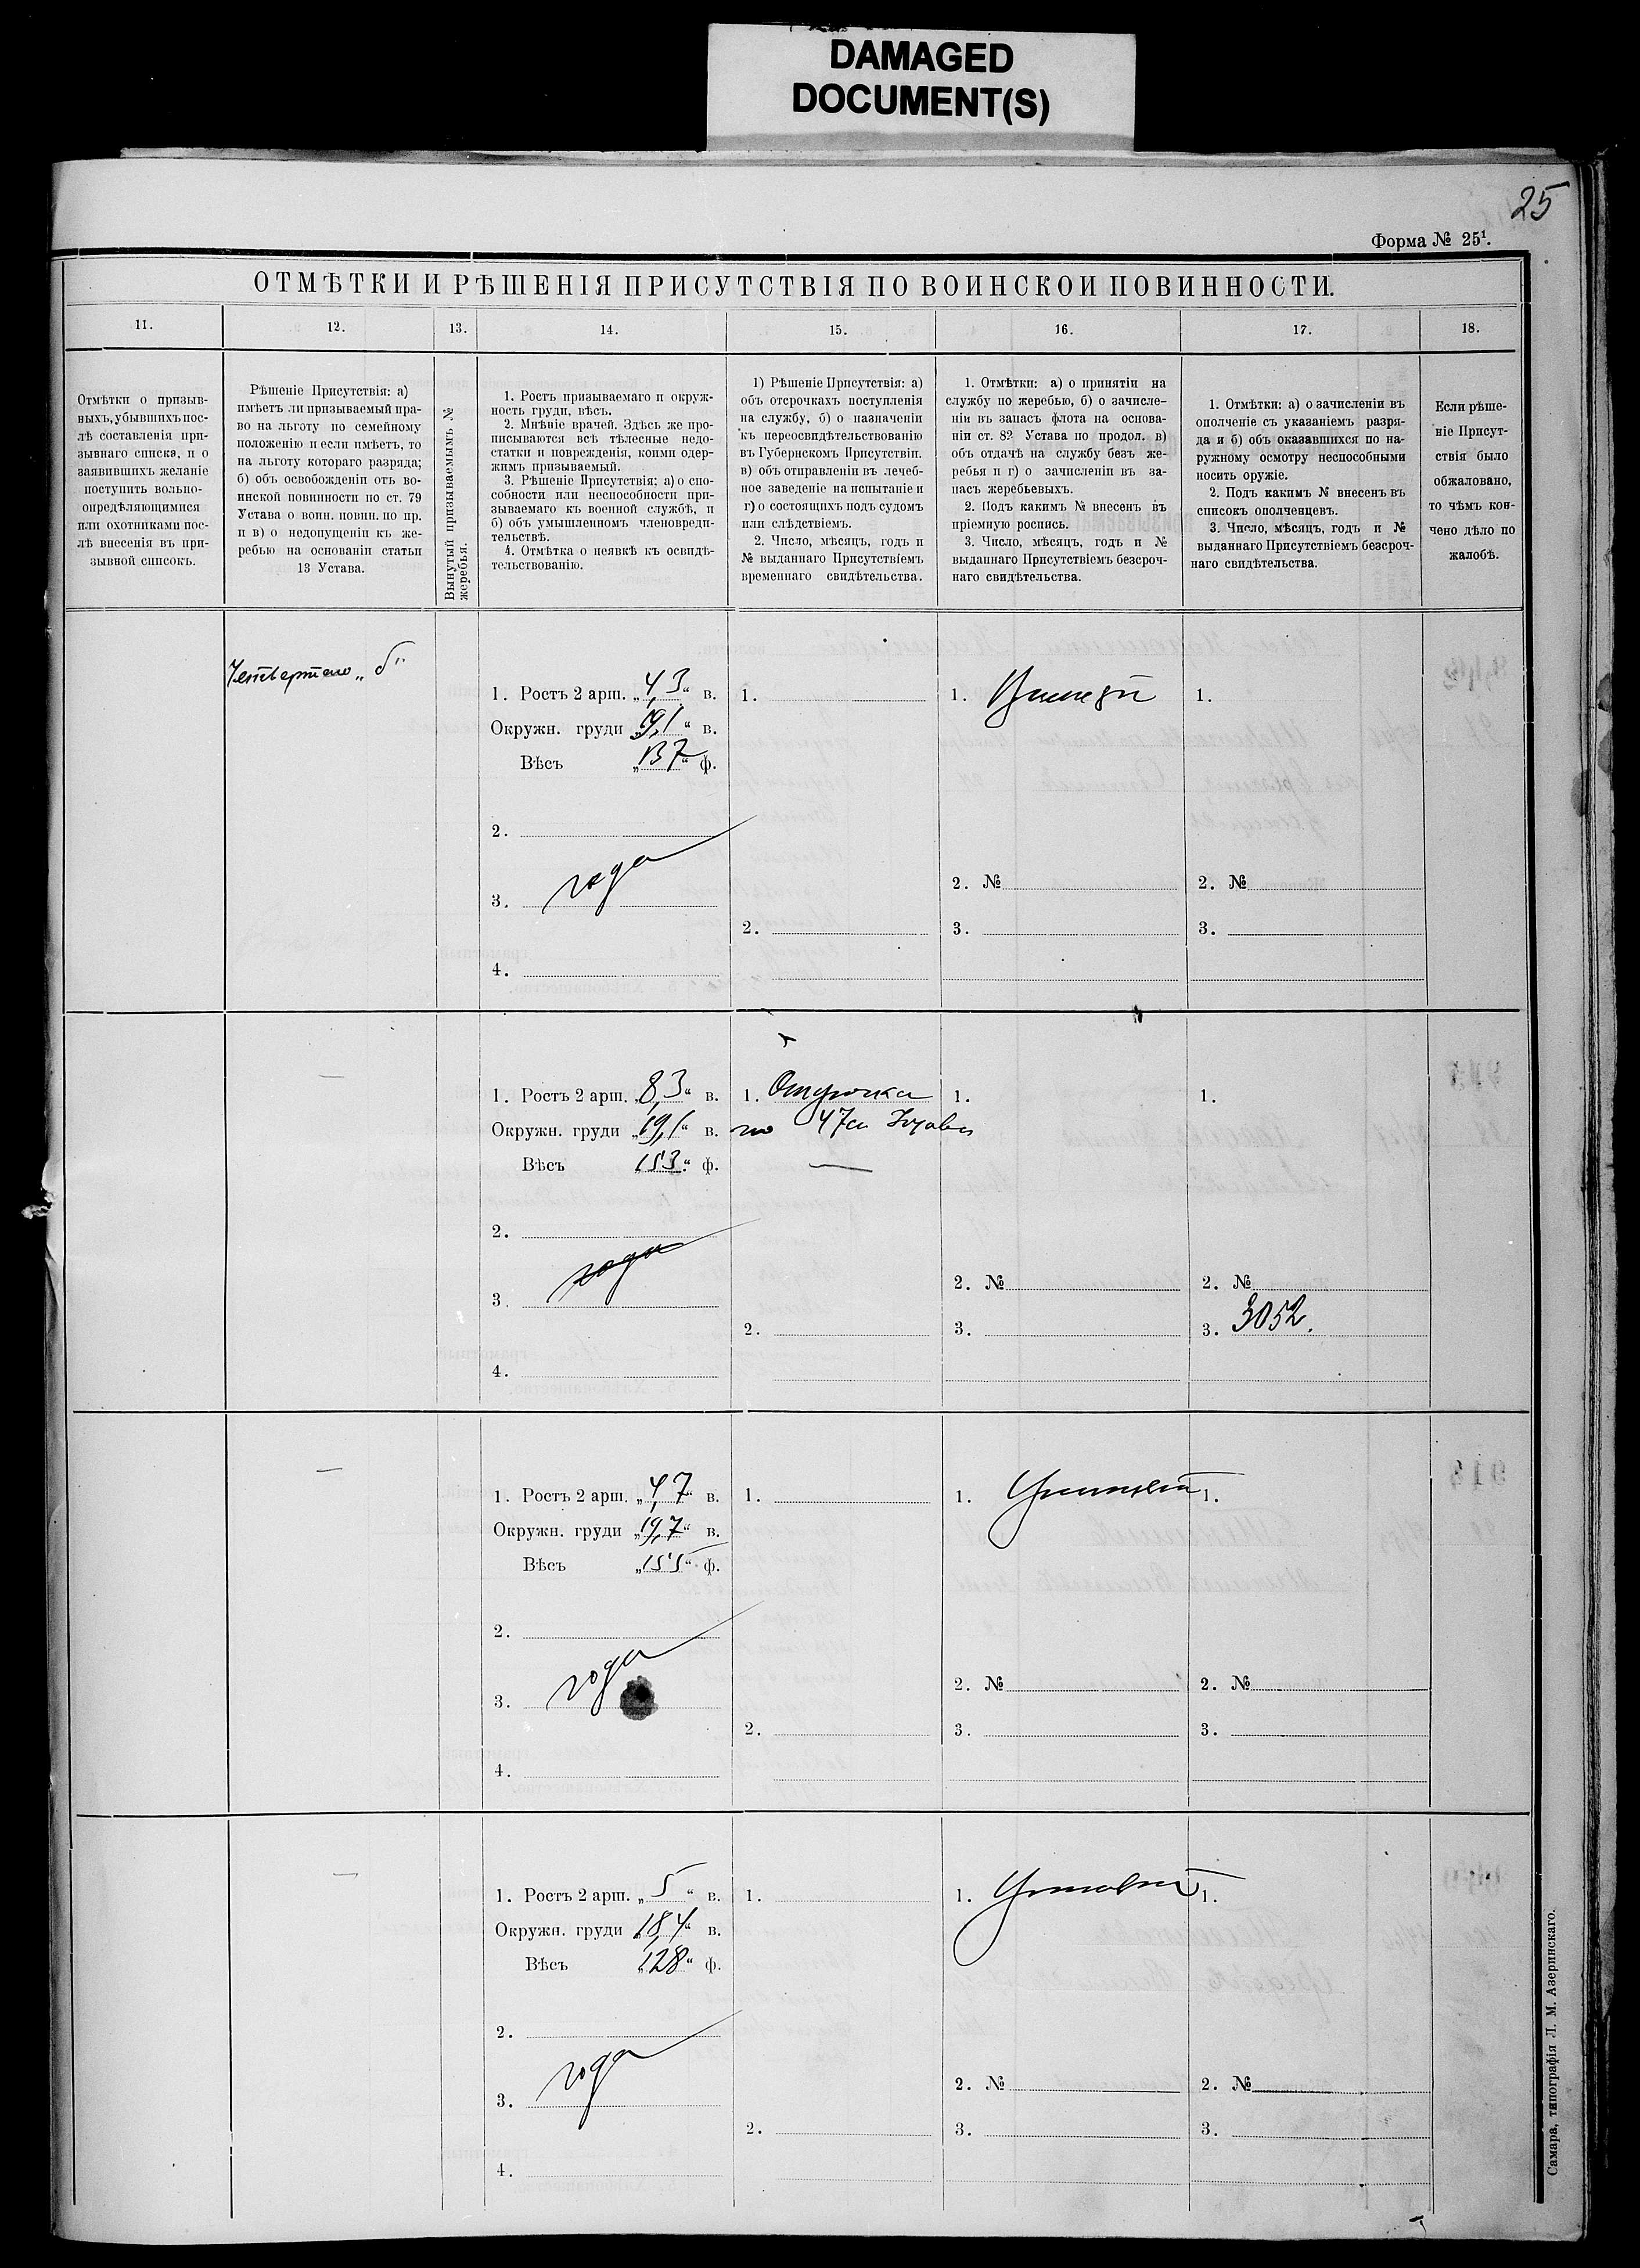 DAMAGED
DOCUMENT(S)
25
Форма № 25¹.
ОТМѢТКИ И РѢШЕНІЯ ПРИСУТСТВІЯ ПО ВОИНСКОЙ ПОВИННОСТИ.
11.
12.
13.
14.
15.
16.
17.
18.
Отмѣтки о призыв-
ныхъ, убывшихъ пос-
лѣ составленія при-
зывнаго списка, и о
заявившихъ желаніе
поступить вольно-
опредѣляющимися
или охотниками пос-
лѣ внесенія въ при-
зывной списокъ.
Рѣшеніе Присутствія: а)
имѣетъ ли призываемый пра-
во на льготу по семейному
положенію и если имѣетъ, то
на льготу котораго разряда;
б) объ освобожденіи отъ во-
инской повинности по ст. 79
Устава о воин. повин. по пр.
и в) о недопущеніи къ же-
ребью на основаніи статьи
13 Устава.
Вынутый призываемымъ №
жеребья.
1. Ростъ призываемаго и окруж-
ность груди, вѣсъ.
2. Мнѣніе врачей. Здѣсь же про-
писываются всѣ тѣлесные недо-
статки и поврежденія, коими одер-
жимъ призываемый.
3. Рѣшеніе Присутствія; а) о спо-
собности или неспособности при-
зываемаго къ военной службѣ, и
б) объ умышленномъ членовреди-
тельствѣ.
4. Отмѣтка о неявкѣ къ освидѣ-
тельствованію.
1) Рѣшеніе Присутствія: а)
объ отсрочкахъ поступленія
на службу, б) о назначеніи
къ переосвидѣтельствованію
въ Губернскомъ Присутствіи.
в) объ отправленіи въ лечеб-
ное заведеніе на испытаніе и
г) о состоящихъ подъ судомъ
или слѣдствіемъ.
2. Число, мѣсяцъ, годъ и
№ выданнаго Присутствіемъ
временнаго свидѣтельства.
1. Отмѣтки: а) о принятіи на
службу по жеребью, б) о зачисле-
ніи въ запасъ флота на основа-
ніи ст. 82 Устава по продол. в)
объ отдачѣ на службу безъ же-
ребья и г) о зачисленіи въ за-
пасъ жеребьевыхъ.
2. Подъ какимъ № внесенъ въ
пріемную роспись.
3. Число, мѣсяцъ, годъ и №
выданнаго Присутствіемъ безсроч-
наго свидѣтельства.
1. Отмѣтки: а) о зачисленіи въ
ополченіе съ указаніемъ разря-
да и б) объ оказавшихся по на-
ружному осмотру неспособными
носить оружіе.
2. Подъ какимъ № внесенъ въ
списокъ ополченцевъ.
3. Число, мѣсяцъ, годъ и №
выданнаго Присутствіемъ безсроч-
наго свидѣтельства.
Если рѣше-
ніе Присут-
ствія было
обжаловано,
то чѣмъ кон-
чено дѣло по
жалобѣ.
Четвертаго „б"
1. Ростъ 2 арш. „4,3" в.
Окружн. груди „19,1" в.
Вѣсъ „137" ф.
2.
3. годен
4.
1.
2.
1. Принятъ
2. №
3.
1.
2. №
3.
—
1. Ростъ 2 арш. „8,3" в.
Окружн. груди „19,1" в.
Вѣсъ „153" ф.
2.
3. годен
4.
1. Отсрочка
по 47а
2.
1.
2. №
3.
1.
2. №
3. 3052.
—
1. Ростъ 2 арш. „4,7" в.
Окружн. груди „19,7" в.
Вѣсъ „155" ф.
2.
3. годен
4.
1.
2.
1.
2. №
3.
1.
2. №
3.
—
1. Ростъ 2 арш. „5" в.
Окружн. груди „18,4" в.
Вѣсъ „128" ф.
2.
3. годен
4.
1.
2.
1.
2. №
3.
1.
2. №
3.
Самара, типографія Л. М. Азеринскаго.